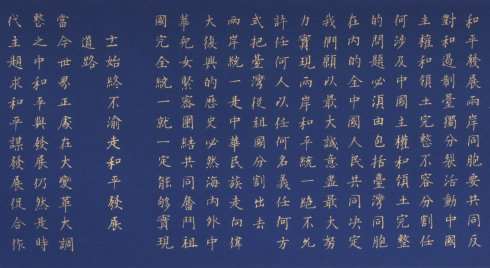 和平發展兩岸同胞要共同反
對和遏制臺獨分裂活動中國
主權和領土完整不容分割任
何涉及中國主權和領土完整
的問題必須由包括臺灣同胞
在內的全中國人民共同決定
我們願以最大誠意盡最大努
力實現兩岸和平統一絕不允
許任何人以任何名義任何方
式把臺灣從祖國分割出去
兩岸統一是中華民族走向偉
大復興的歷史必然海內外中
華兒女緊密團結共同奮鬥祖
國完全統一就一定能夠實現
十一始終不渝走和平發展
道路
當今世界正處在大變革大調
整之中和平與發展仍然是時
代主題求和平謀發展促合作